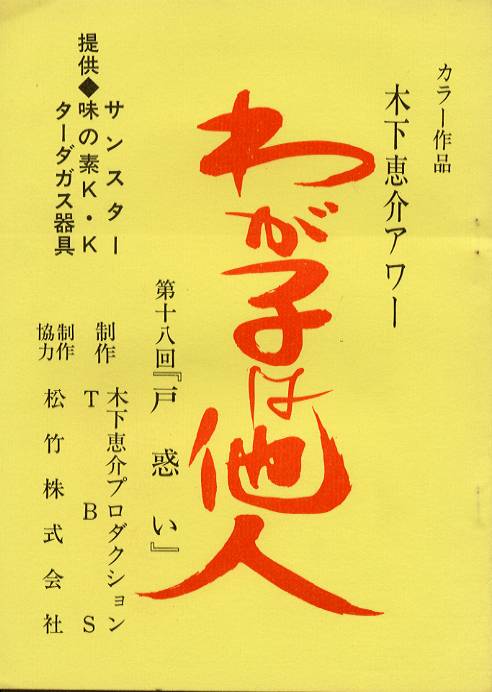 カラー作品
木下恵介アワー
わが子は他人
第十八回『戸惑い』
提供◆サンスター
味の素K・K
ターダガス器具
制作 木下恵介プロダクション
TBS
制作協力 松竹株式会社